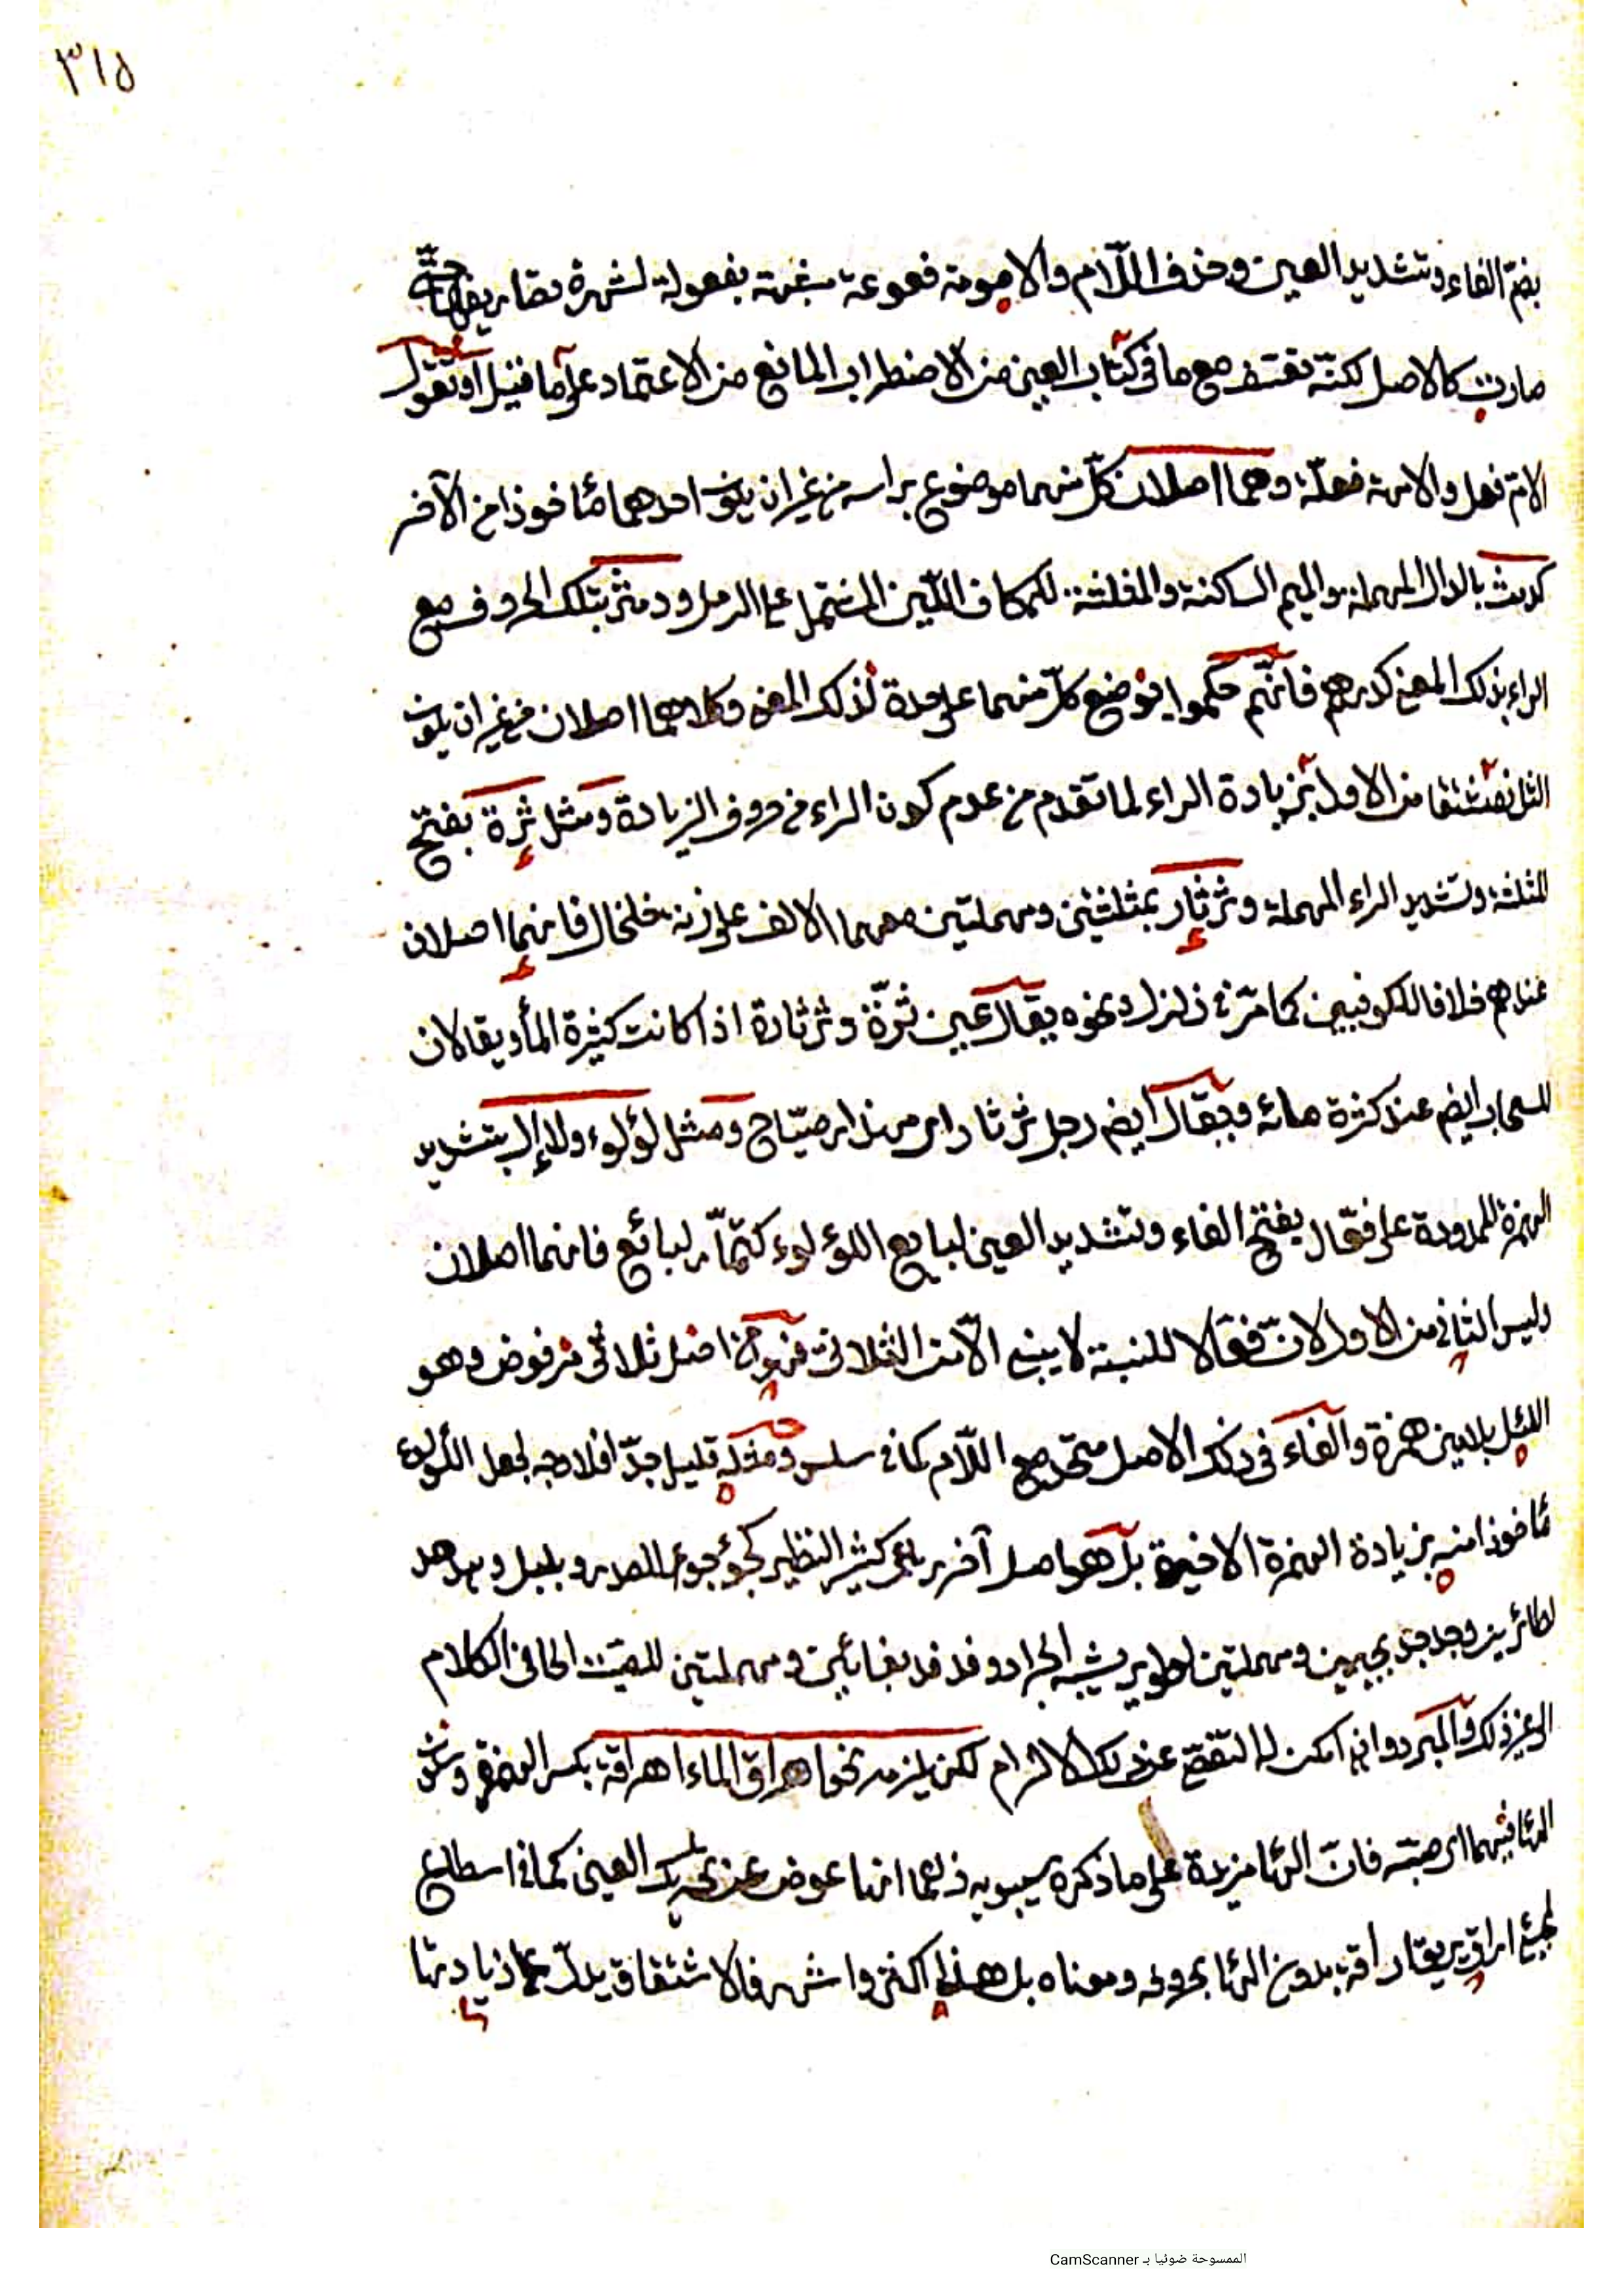 ٣١٥
بضمّ الفاء وتشديد العين وحذف اللّام والامومة فعوعة شبهت بفعولة لشهرة تصاريفها حتّى
صارت كالاصل لكنّه تعسّف مع ما في كتاب العين من الاضطراب المانع من الاعتماد على ما فيه او نقول
الامّ فعل والامهة فعلّة وهما اصلان كلّ منهما موضوع براسه من غير ان يكون احدهما مأخوذا من الآخر
كدمث بالدال المهملة والميم الساكنة والمثلثة للمكان اللّين المشتمل على الرمل ودمثر بتلك الحروف مع
الراء بذلك المعنى كدرهم فانّهم حكموا بوضع كلّ منهما على حدة لذلك المعنى وكلاهما اصلان من غير ان يكون
الثاني مشتقا من الاول بزيادة الراء لما تقدم من عدم كون الراء من حروف الزيادة ومثل ثرّة بفتح
المثلثة وتشديد الراء المهملة وثرثار بمثلثتين ومهملتين معهما الالف على زنة خلخال فانهما اصلان
عندهم خلافا للكوفيين كما مرّ في زلزل ونحوه يقال عين ثرّة وثرثارة اذا كانت كثيرة المأ ويقالان
للسحاب ايضم عند كثرة مائه ويقال ايضم رجل ثرثار اى مهذار صيّاح ومثل لؤلوء ولاإال بتشديد
الهمزة الممدودة على فعّال بفتح الفاء وتشديد العين لبايع اللؤلوء كتمّار لبائع فانهما اصلان
وليس الثاني من الاول لانّ فعّالا للنسبة لا يبنى الّا من الثلاثى فهو من اصل ثلاثى مرفوض وهو
اللئل بلامين همزة والفاء في ذلك الاصل متحد مع اللّام كما في سلس ومثله قليل جدّا فلا وجه لجعل اللؤلوء
مأخوذا منه بزيادة الهمزة الاخيرة بل هو اصل آخر رباعى كثير النظير كجؤجوء للصدر وبلبل وهدهد
لطائرين وجدجد بجيمين ومهملتين لطوير يشبه الجراد وفدفد بفائين ومهملتين الجافى الكلام
الى غير ذلك والمبرد وان امكن له التفصّى عن ذلك الالزام لكن يلزمه نحو اهراق الماء اهراقة بكسر الهمزة وسكون
الهأ فيهما اى صبّه فانّ الهأ مزيدة على ما ذكره سيبويه زعما انها عوض عن تحريك العين كما في اسطاع
لمجئ اراق يريق اراقة بدون الهأ بحروفه ومعناه بل هذا اكثر واشهر فالاشتقاق يدلّ على زيادتها
الممسوحة ضوئيا بـ CamScanner